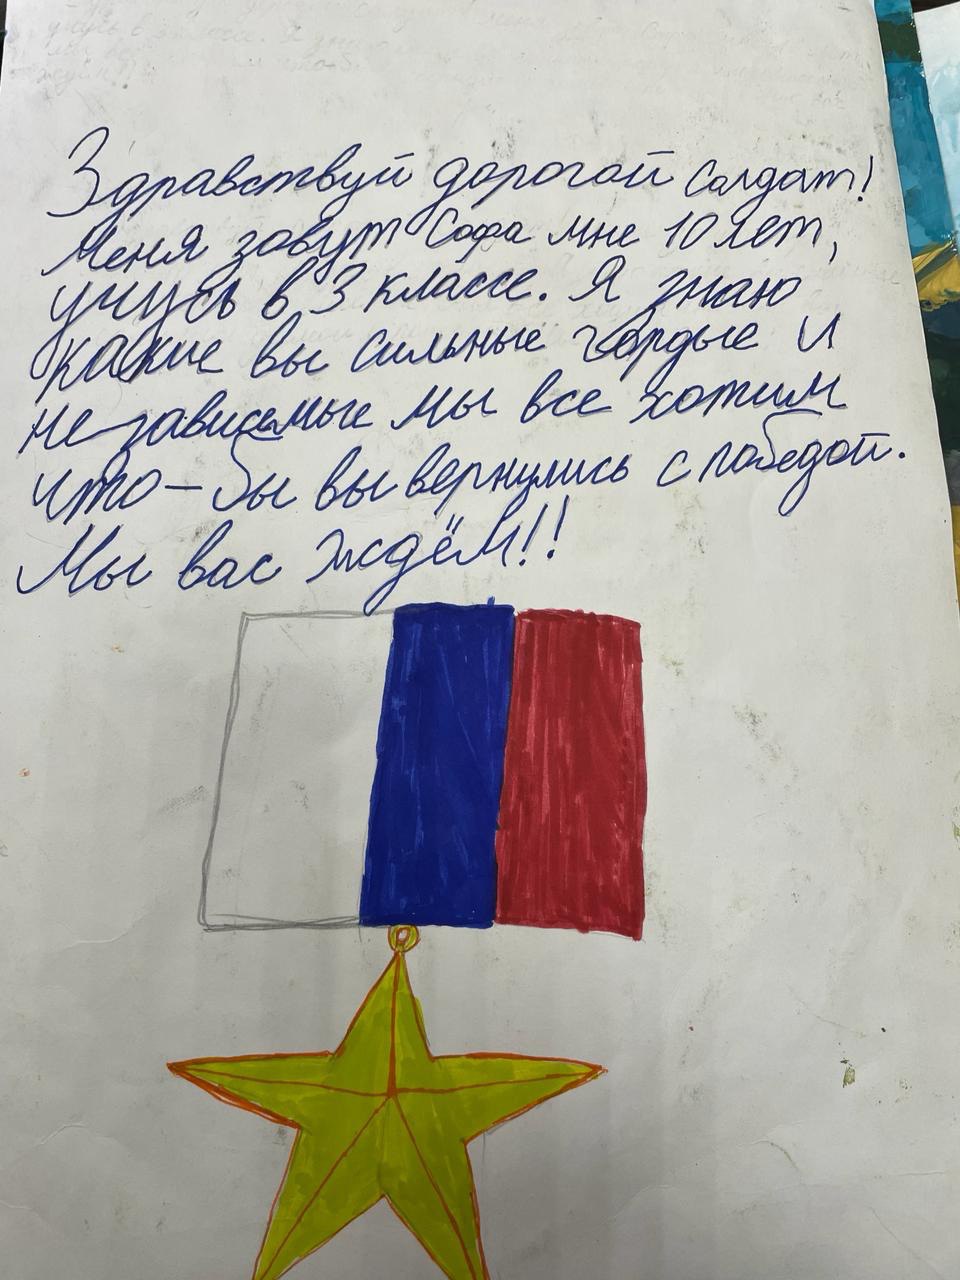 Здравствуй дорогой Солдат!
Меня зовут Софа мне 10 лет,
учусь в 3 классе. Я знаю
какие вы сильные гордые и
не зависемые Мы все хотим
что-бы вы вернулись с победой.
Мы вас ждём!!